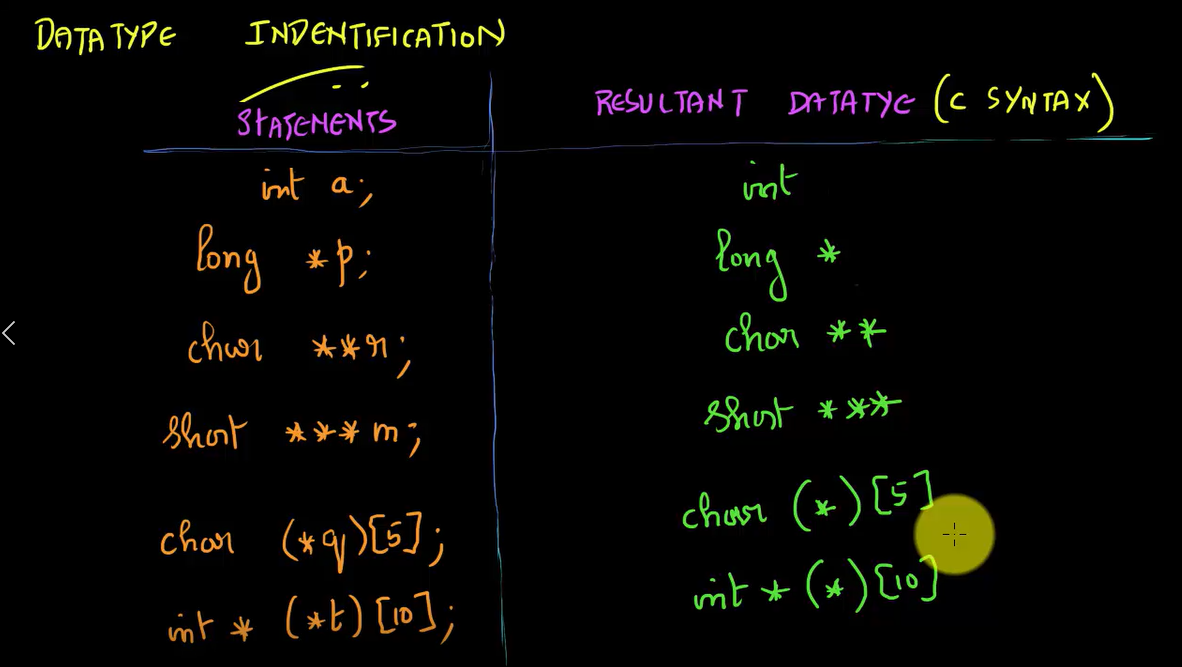 DATATYPE INDENTIFICATION
STATEMENTS RESULTANT DATATYE (C SYNTAX)
int a; int
long *p; long *
char **r; char **
short ***m; short ***
char (*q)[5]; char (*)[5]
int * (*t)[10]; int * (*)[10]